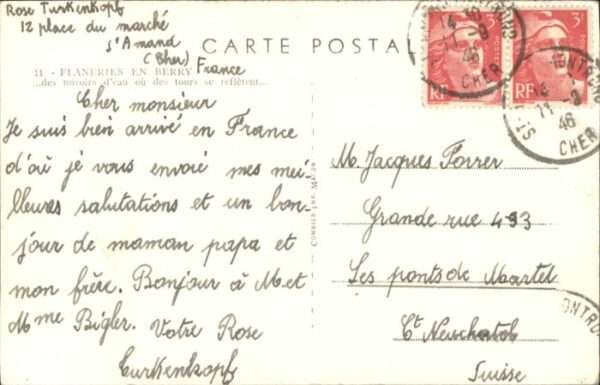 Rose Turkenkopf
12 place du marché
S'Amand
(Cher)
France
CARTE POSTALE
11 - FLANERIES EN BERRY
...des miroirs d'eau où des tours se reflètent...
Cher monsieur
Je suis bien arrivé en France
d'où je vous envoie mes mei-
lleures salutations et un bon-
jour de maman papa et
mon frère. Bonjour à M et
Mme Bigler. Votre Rose
Turkenkopf
COMBIER IMP. MACON
M. Jacques Forrer
Grande rue 493
Les ponts de Martel
Ct Neuchatel
Suisse
3F
RF
11-9
46
CHER
3F
RF
11-9
46
CHER